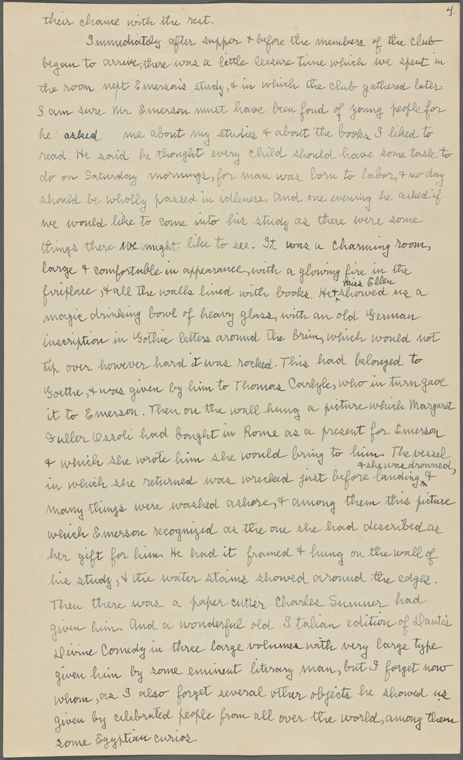 4.
their chance with the rest.
Immediately after supper & before the members of the club
began to arrive, there was a little leisure time which we spent in
the room next Emerson's study, & in which the club gathered later.
I am sure Mr Emerson must have been fond of young people for
he asked me about my studies & about the books I liked to
read. He said he thought every child should have some task to
do on Saturday mornings, for man was born to labor, & no day
should be wholly passed in idleness. And one evening he asked if
we would like to come into his study as there were some
things there we might like to see. It was a charming room,
large & comfortable in appearance, with a glowing fire in the
fireplace, & all the walls lined with books. He & Miss Ellen showed us a
magic drinking bowl of heavy glass, with an old German
inscription in Gothic letters around the brim, which would not
tip over however hard it was rocked. This had belonged to
Goethe, & was given by him to Thomas Carlyle, who in turn gave
it to Emerson. Then on the wall hung a picture which Margaret
Fuller Ossoli had bought in Rome as a present for Emerson
& which she wrote him she would bring to him. The vessel
in which she returned was wrecked just before landing & she was drowned,
many things were washed ashore, & among them this picture
which Emerson recognized as the one she had described as
her gift for him. He had it framed & hung on the wall of
his study, & the water stains showed around the edges.
Then there was a paper cutter Charles Sumner had
given him. And a wonderful old Italian edition of Dante's
Divine Comedy in three large volumes with very large type
given him by some eminent literary man, but I forget now
whom, as I also forget several other objects he showed us
given by celebrated people from all over the world, among them
some Egyptian curios.